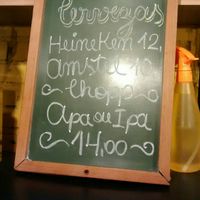 Cervejas
Heineken 12,
Amstel 10,
Chopp
Apa ou Ipa
14,00